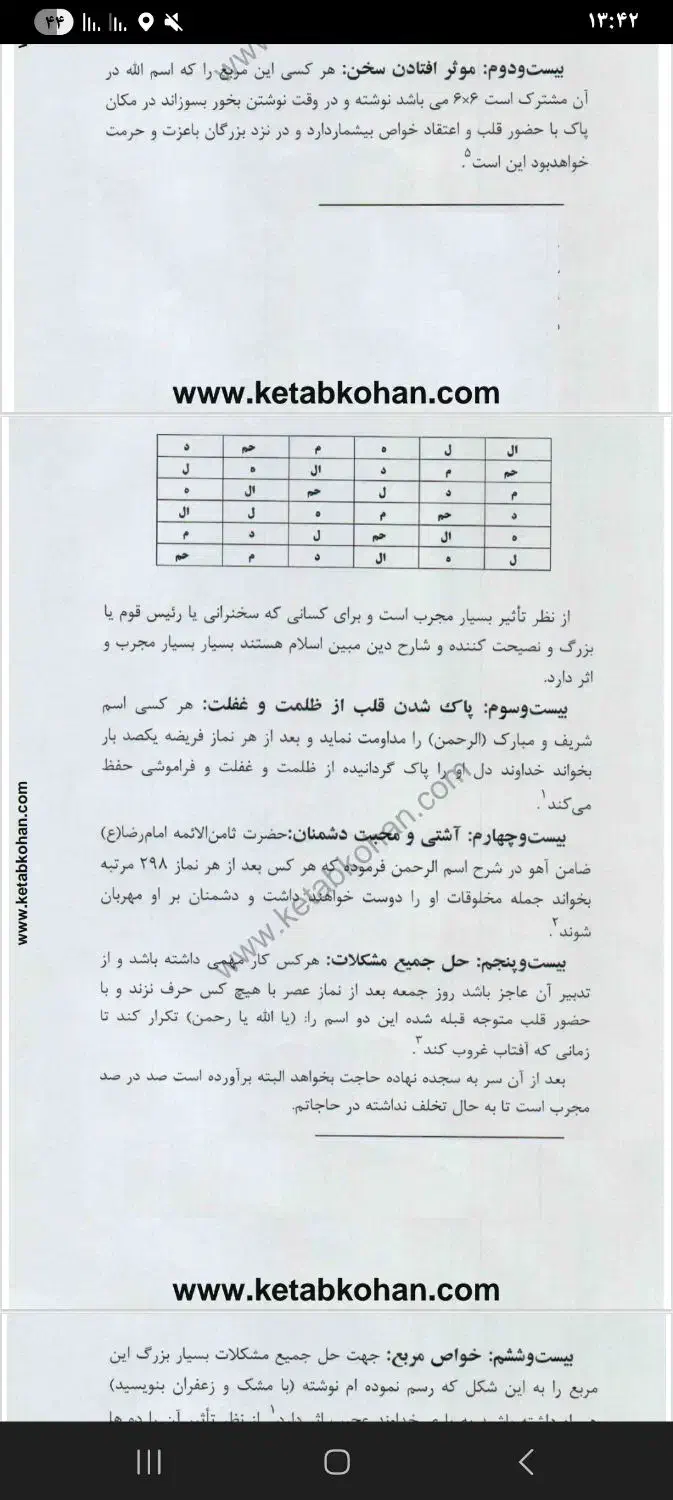 ۱۳:۴۲
۴۴
بیست‌ودوم: موثر افتادن سخن: هر کسی این مربع را که اسم الله در
آن مشترک است ۶×۶ می باشد نوشته و در وقت نوشتن بخور بسوزاند در مکان
پاک با حضور قلب و اعتقاد خواص بیشماردارد و در نزد بزرگان باعزت و حرمت
خواهدبود این است۵.
www.ketabkohan.com
ال ل ه م حم د
حم م د ال ه ل
م د ل حم ال ه
د حم م ه ل ال
ه ال حم ل د م
ل ه ال د م حم
از نظر تأثیر بسیار مجرب است و برای کسانی که سخنرانی یا رئیس قوم یا
بزرگ و نصیحت کننده و شارح دین مبین اسلام هستند بسیار بسیار مجرب و
اثر دارد.
بیست‌وسوم: پاک شدن قلب از ظلمت و غفلت: هر کسی اسم
شریف و مبارک (الرحمن) را مداومت نماید و بعد از هر نماز فریضه یکصد بار
بخواند خداوند دل او را پاک گردانیده از ظلمت و غفلت و فراموشی حفظ
می‌کند۱.
بیست‌وچهارم: آشتی و محبت دشمنان:حضرت ثامن‌الائمه امام‌رضا(ع)
ضامن آهو در شرح اسم الرحمن فرموده که هر کس بعد از هر نماز ۲۹۸ مرتبه
بخواند جمله مخلوقات او را دوست خواهند داشت و دشمنان بر او مهربان
شوند۲.
بیست‌وپنجم: حل جمیع مشکلات: هرکس کار مهمی داشته باشد و از
تدبیر آن عاجز باشد روز جمعه بعد از نماز عصر با هیچ کس حرف نزند و با
حضور قلب متوجه قبله شده این دو اسم را: (یا الله یا رحمن) تکرار کند تا
زمانی که آفتاب غروب کند۳.
بعد از آن سر به سجده نهاده حاجت بخواهد البته برآورده است صد در صد
مجرب است تا به حال تخلف نداشته در حاجاتم.
www.ketabkohan.com
www.ketabkohan.com
www.ketabkohan.com
بیست‌وششم: خواص مربع: جهت حل جمیع مشکلات بسیار بزرگ این
مربع را به این شکل که رسم نموده ام نوشته (با مشک و زعفران بنویسید)